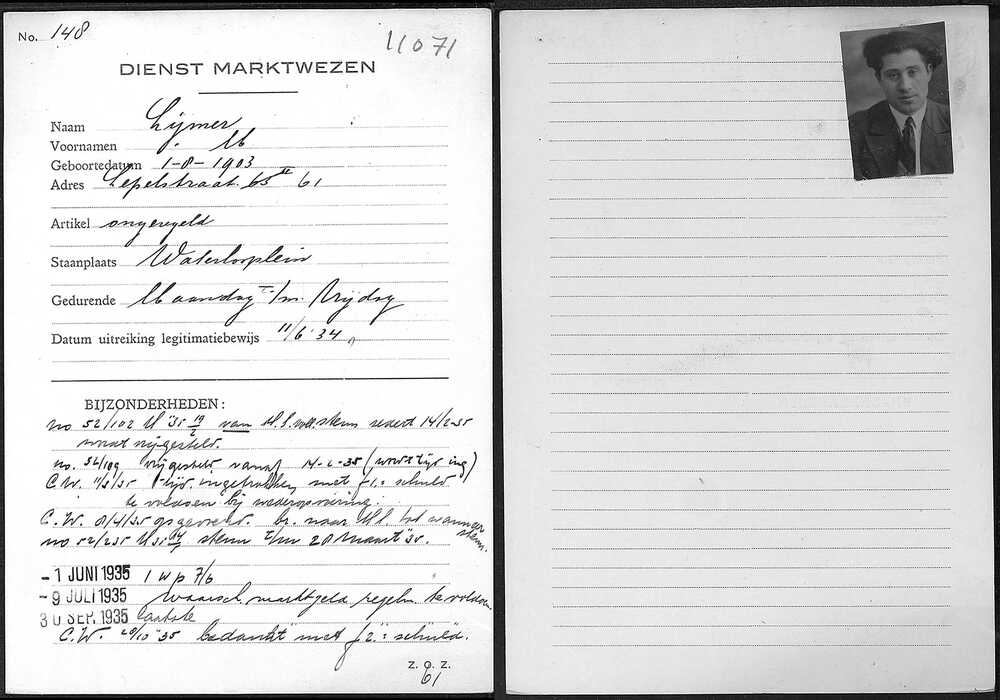 No. 148
11071
DIENST MARKTWEZEN
Naam Lijmer
Voornamen M
Geboortedatum 1-8-1903
Adres Lepelstraat 65 II 61
Artikel ongeregeld
Staanplaats Waterlooplein
Gedurende Maandag t/m. Vrijdag
Datum uitreiking legitimatiebewijs 11/6 '34
BIJZONDERHEDEN:
no 52/102 M '35 19/2 van M.S. steun sedert 14/2-35
wordt vrijgesteld.
no. 52/109 vrijgesteld vanaf 14-2-35 (
C.W. ingetrokken met f 1.= schuld
te voldoen bij wederopvoering.
C.W. 8/4/35 opgevoerd. br. naar M.S. tot wanneer steun.
no 52/235 M 35 steun t/m 20 Maart '35.
- 1 JUNI 1935 1 w p 7/6
- 9 JULI 1935 Waarsch. marktgeld regelm. te voldoen
30 SEP. 1935 laatste
C.W. 29/10 '35 bedankt met f 2.= schuld.
Z. O. Z.
61